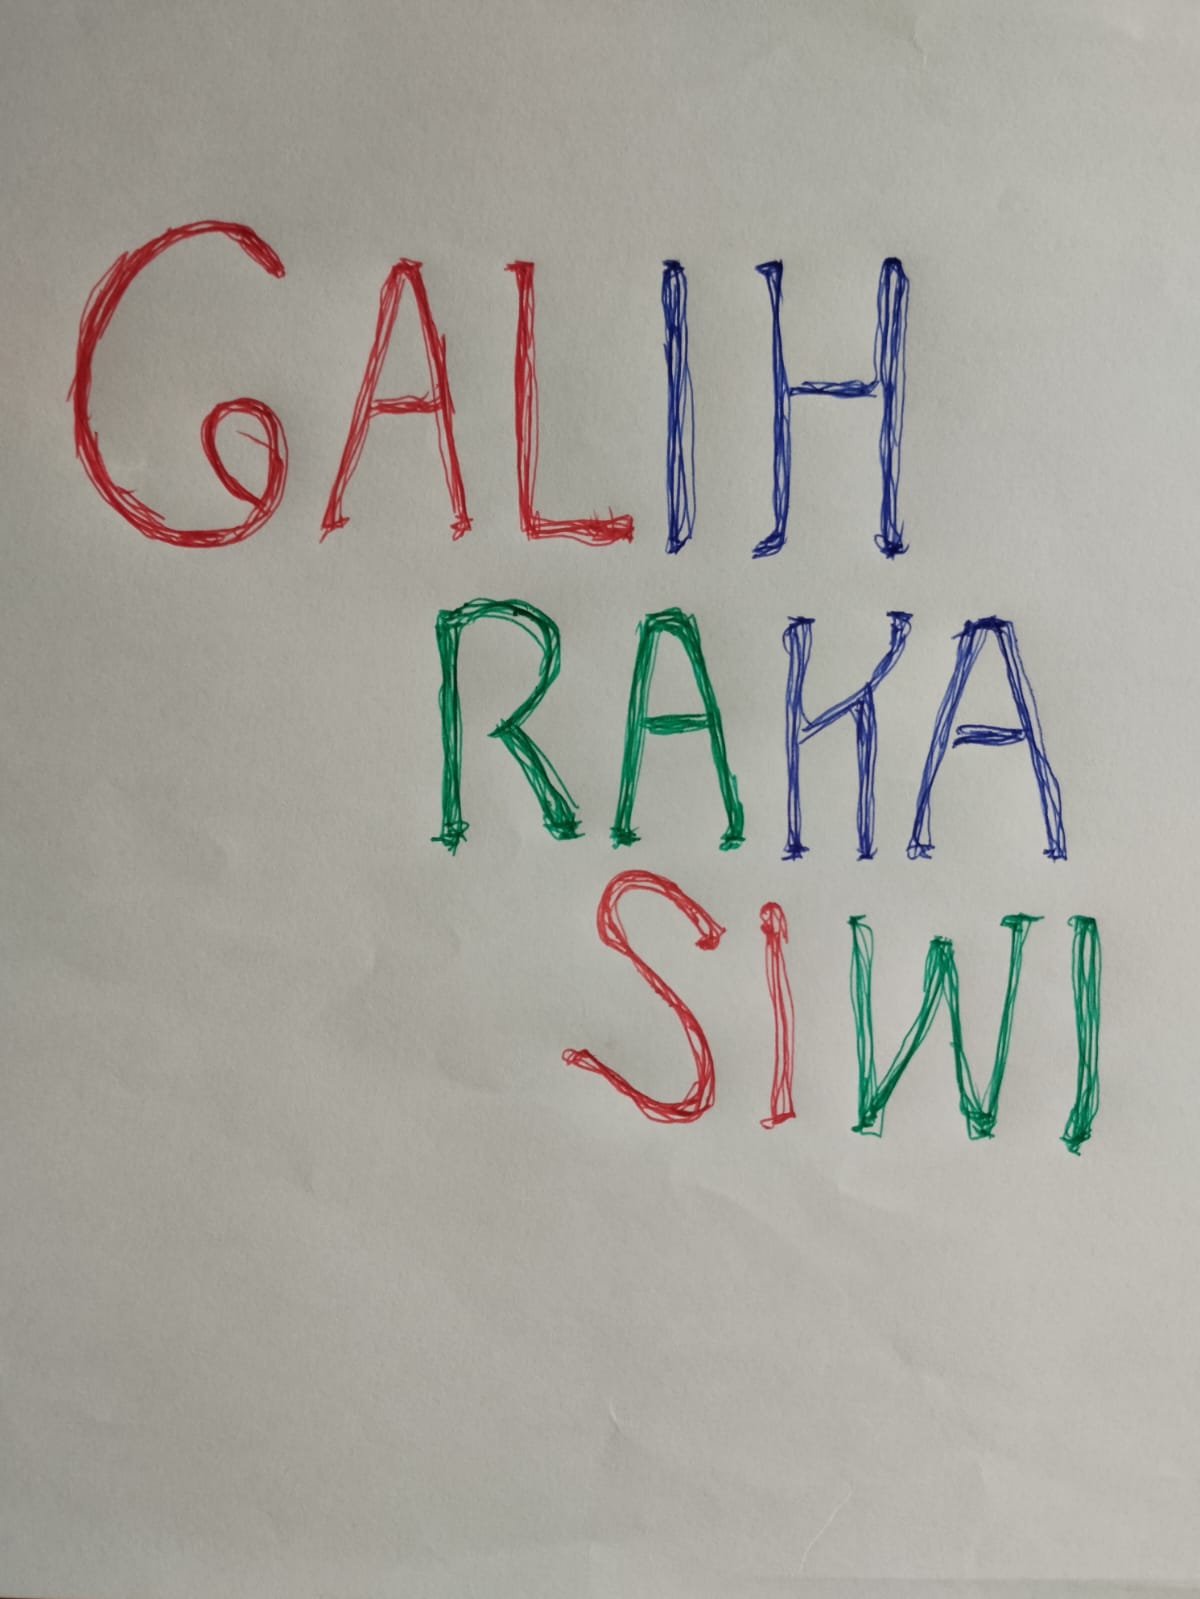 GALIH
RAKA
SIWI